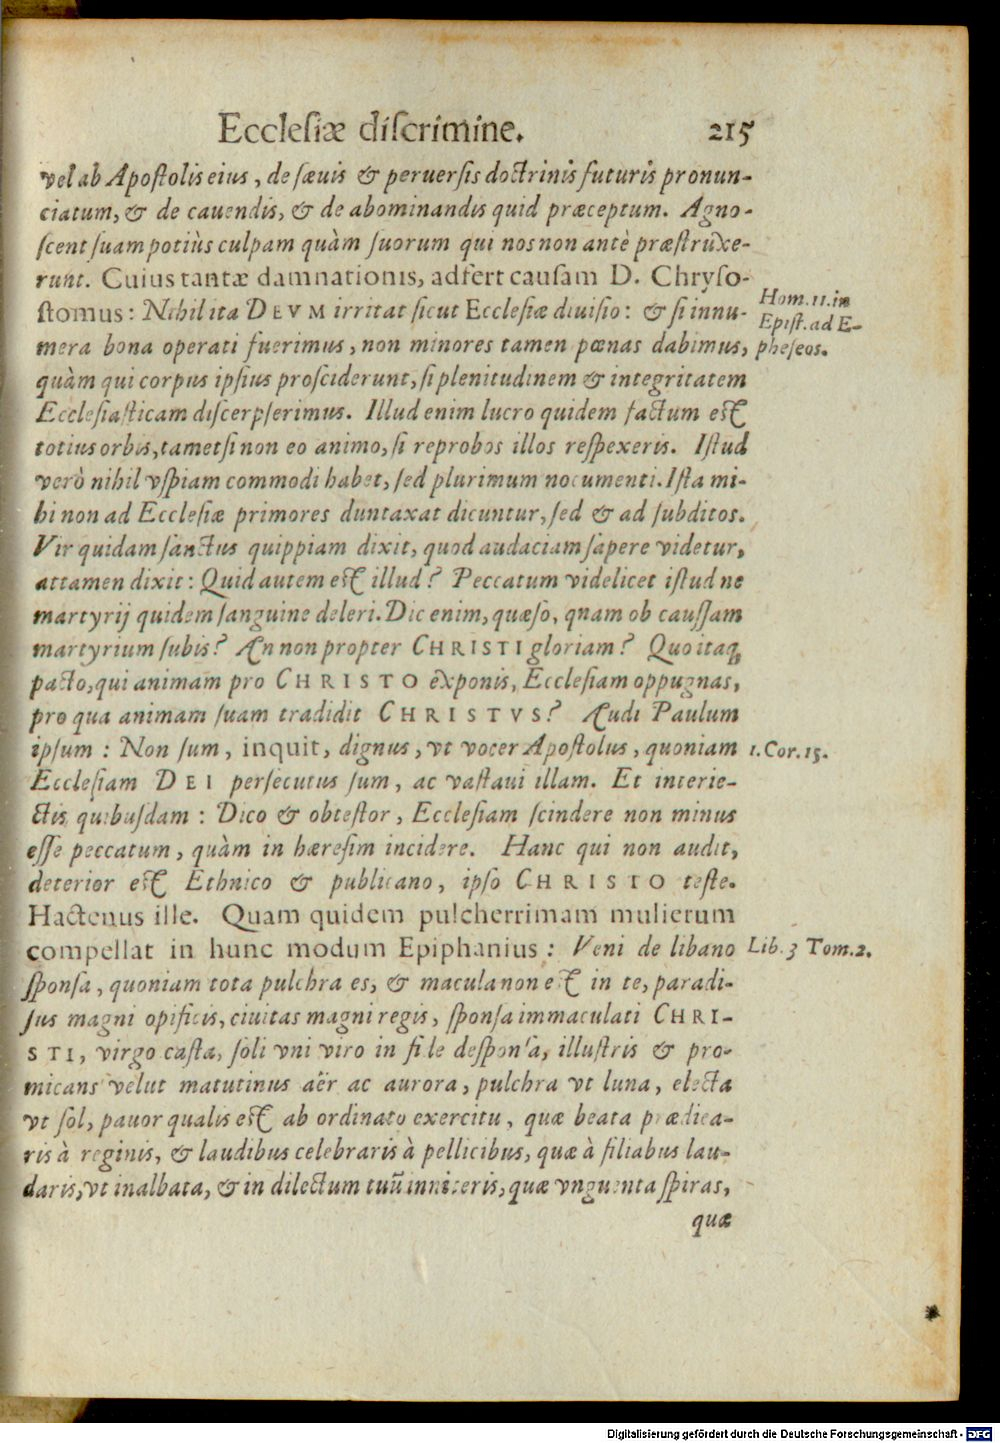 Ecclesiæ discrimine. 215
vel ab Apostolis eius, de sæuis & peruersis doctrinis futuris pronun-
ciatum, & de cauendis, & de abominandis quid præceptum. Agno-
scent suam potiùs culpam quàm suorum qui nos non antè præstruxe-
runt. Cuius tantæ damnationis, adfert causam D. Chryso-
stomus: Nihil ita DEVM irritat sicut Ecclesiæ diuisio: & si innu- Hom. 11. in
mera bona operati fuerimus, non minores tamen pœnas dabimus, Epist. ad E-
quàm qui corpus ipsius prosciderunt, si plenitudinem & integritatem pheseos.
Ecclesiasticam discerpserimus. Illud enim lucro quidem factum est
totius orbis, tametsi non eo animo, si reprobos illos respexeris. Istud
verò nihil vspiam commodi habet, sed plurimum nocumenti. Ista mi-
hi non ad Ecclesiæ primores duntaxat dicuntur, sed & ad subditos.
Vir quidam sanctus quippiam dixit, quod audaciam sapere videtur,
attamen dixit: Quid autem est illud? Peccatum videlicet istud ne
martyrij quidem sanguine deleri. Dic enim, quæso, qnam ob caussam
martyrium subis? An non propter CHRISTI gloriam? Quo itaq;
pacto, qui animam pro CHRISTO exponis, Ecclesiam oppugnas,
pro qua animam suam tradidit CHRISTVS? Audi Paulum
ipsum: Non sum, inquit, dignus, vt vocer Apostolus, quoniam 1. Cor. 15.
Ecclesiam DEI persecutus sum, ac vastaui illam. Et interie-
ctis quibusdam: Dico & obtestor, Ecclesiam scindere non minus
esse peccatum, quàm in hæresim incidere. Hanc qui non audit,
deterior est Ethnico & publicano, ipso CHRISTO teste.
Hactenus ille. Quam quidem pulcherrimam mulierum
compellat in hunc modum Epiphanius: Veni de libano Lib. 3 Tom. 2.
sponsa, quoniam tota pulchra es, & macula non est in te, paradi-
sus magni opificis, ciuitas magni regis, sponsa immaculati CHRI-
STI, virgo casta, soli vni viro in fide desponsa, illustris & pro-
micans velut matutinus aër ac aurora, pulchra vt luna, electa
vt sol, pauor qualis est ab ordinato exercitu, quæ beata prædica-
ris à reginis, & laudibus celebraris à pellicibus, quæ à filiabus lau-
daris, vt inalbata, & in dilectum tuũ inniteris, quæ vnguenta spiras,
quæ
Digitalisierung gefördert durch die Deutsche Forschungsgemeinschaft - DFG